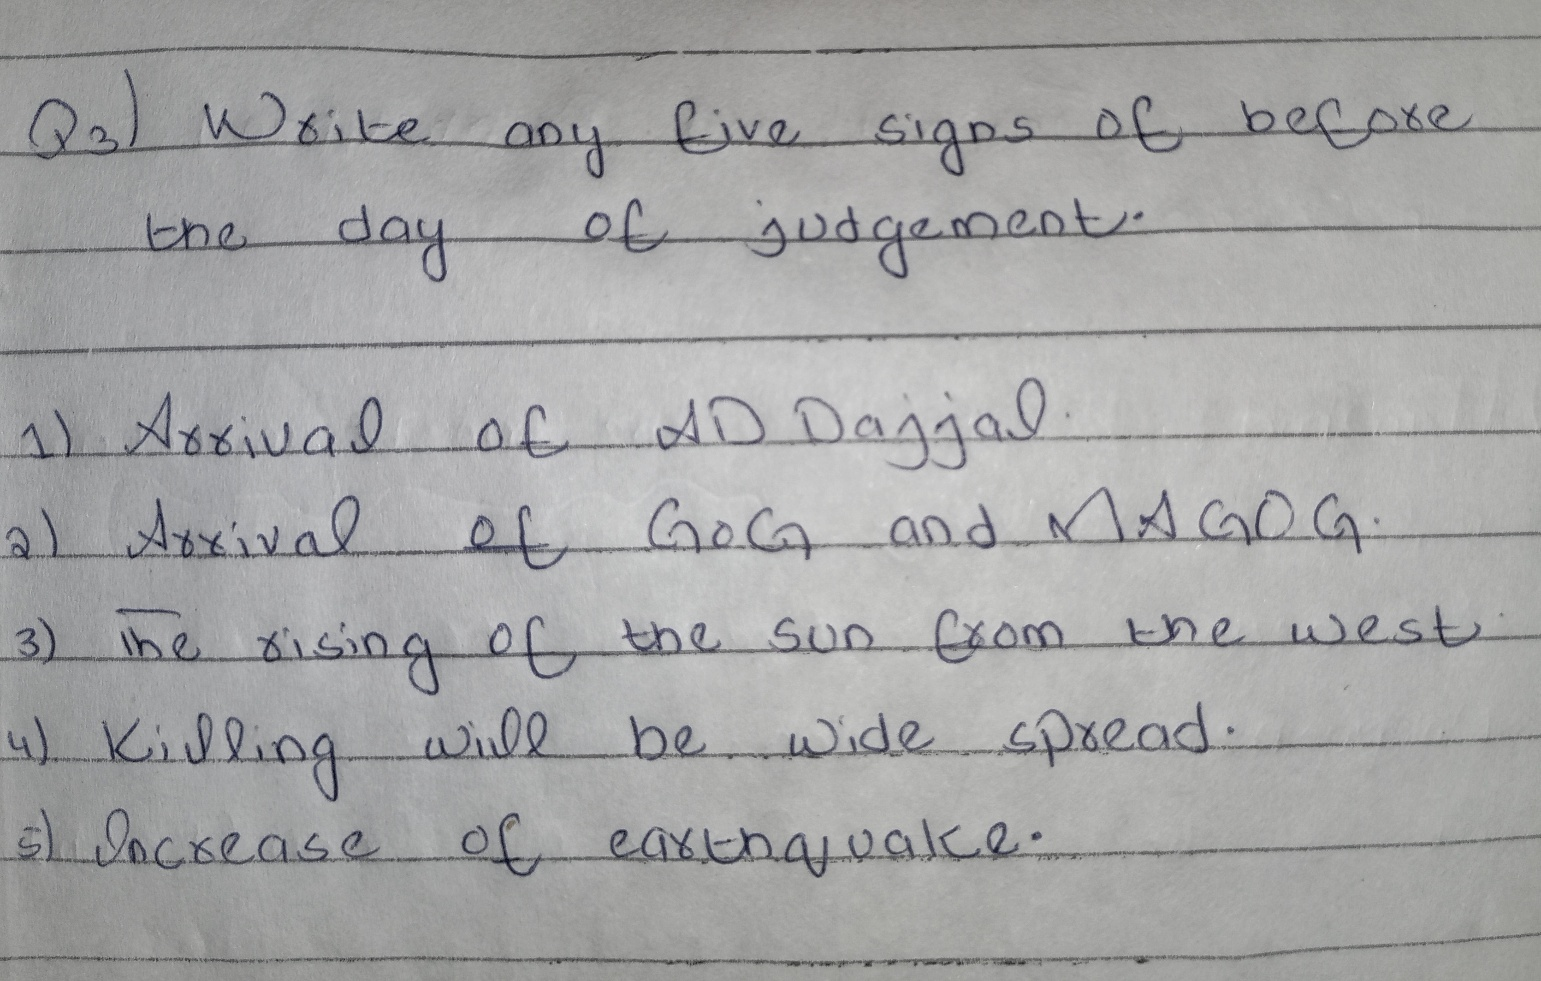 Q3) Write any five signs of before
the day of judgement.
1) Arrival of AD Dajjal.
2) Arrival of GoG and MAGOG.
3) The rising of the sun from the west.
4) Killing will be wide spread.
5) Increase of earthquake.